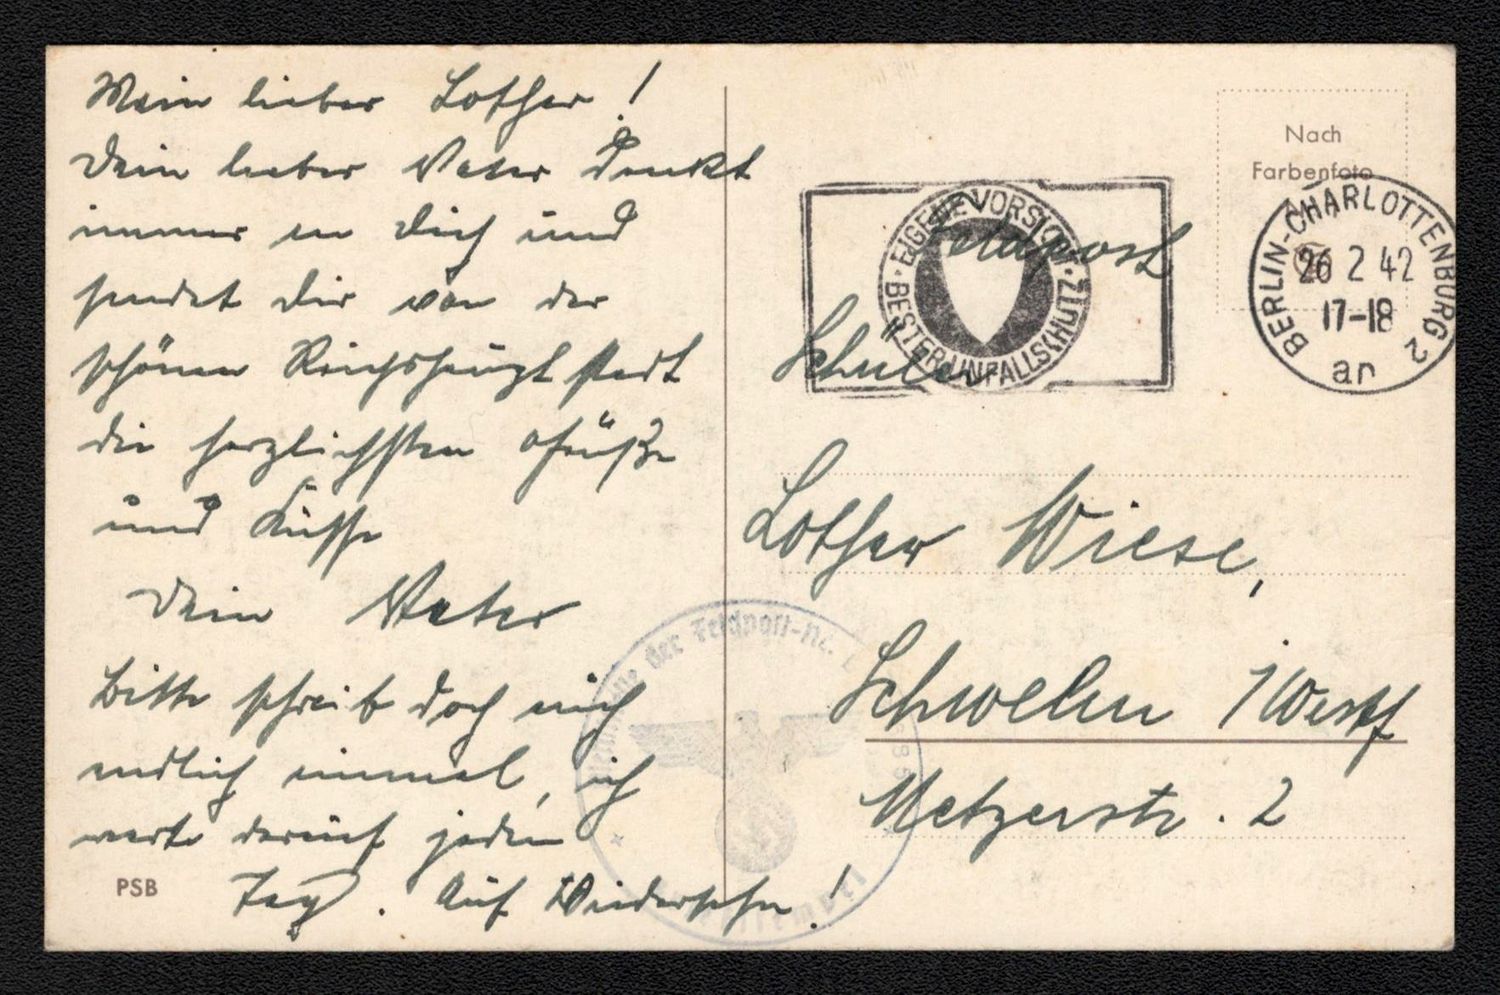 Mein lieber Lother!
Dein lieber Vater denkt
immer an Dich und
sendet Dir von der
schönen Reichshauptstadt
die herzlichsten Grüße
und Küsse
Dein Vater
Bitte schreib doch auch
endlich einmal, ich
warte darauf jeden
Tag. Auf Wiedersehn!
PSB
Nach
Farbenfoto
EIGENE VORSICHT · BESTER UNFALLSCHUTZ ·
BERLIN-CHARLOTTENBURG 2
26 2 42
17-18
an
Feldpost
Schüler
Lother Wiese,
Schwelm i/Westf
Metzerstr. 2
der Feldpost-Nr.